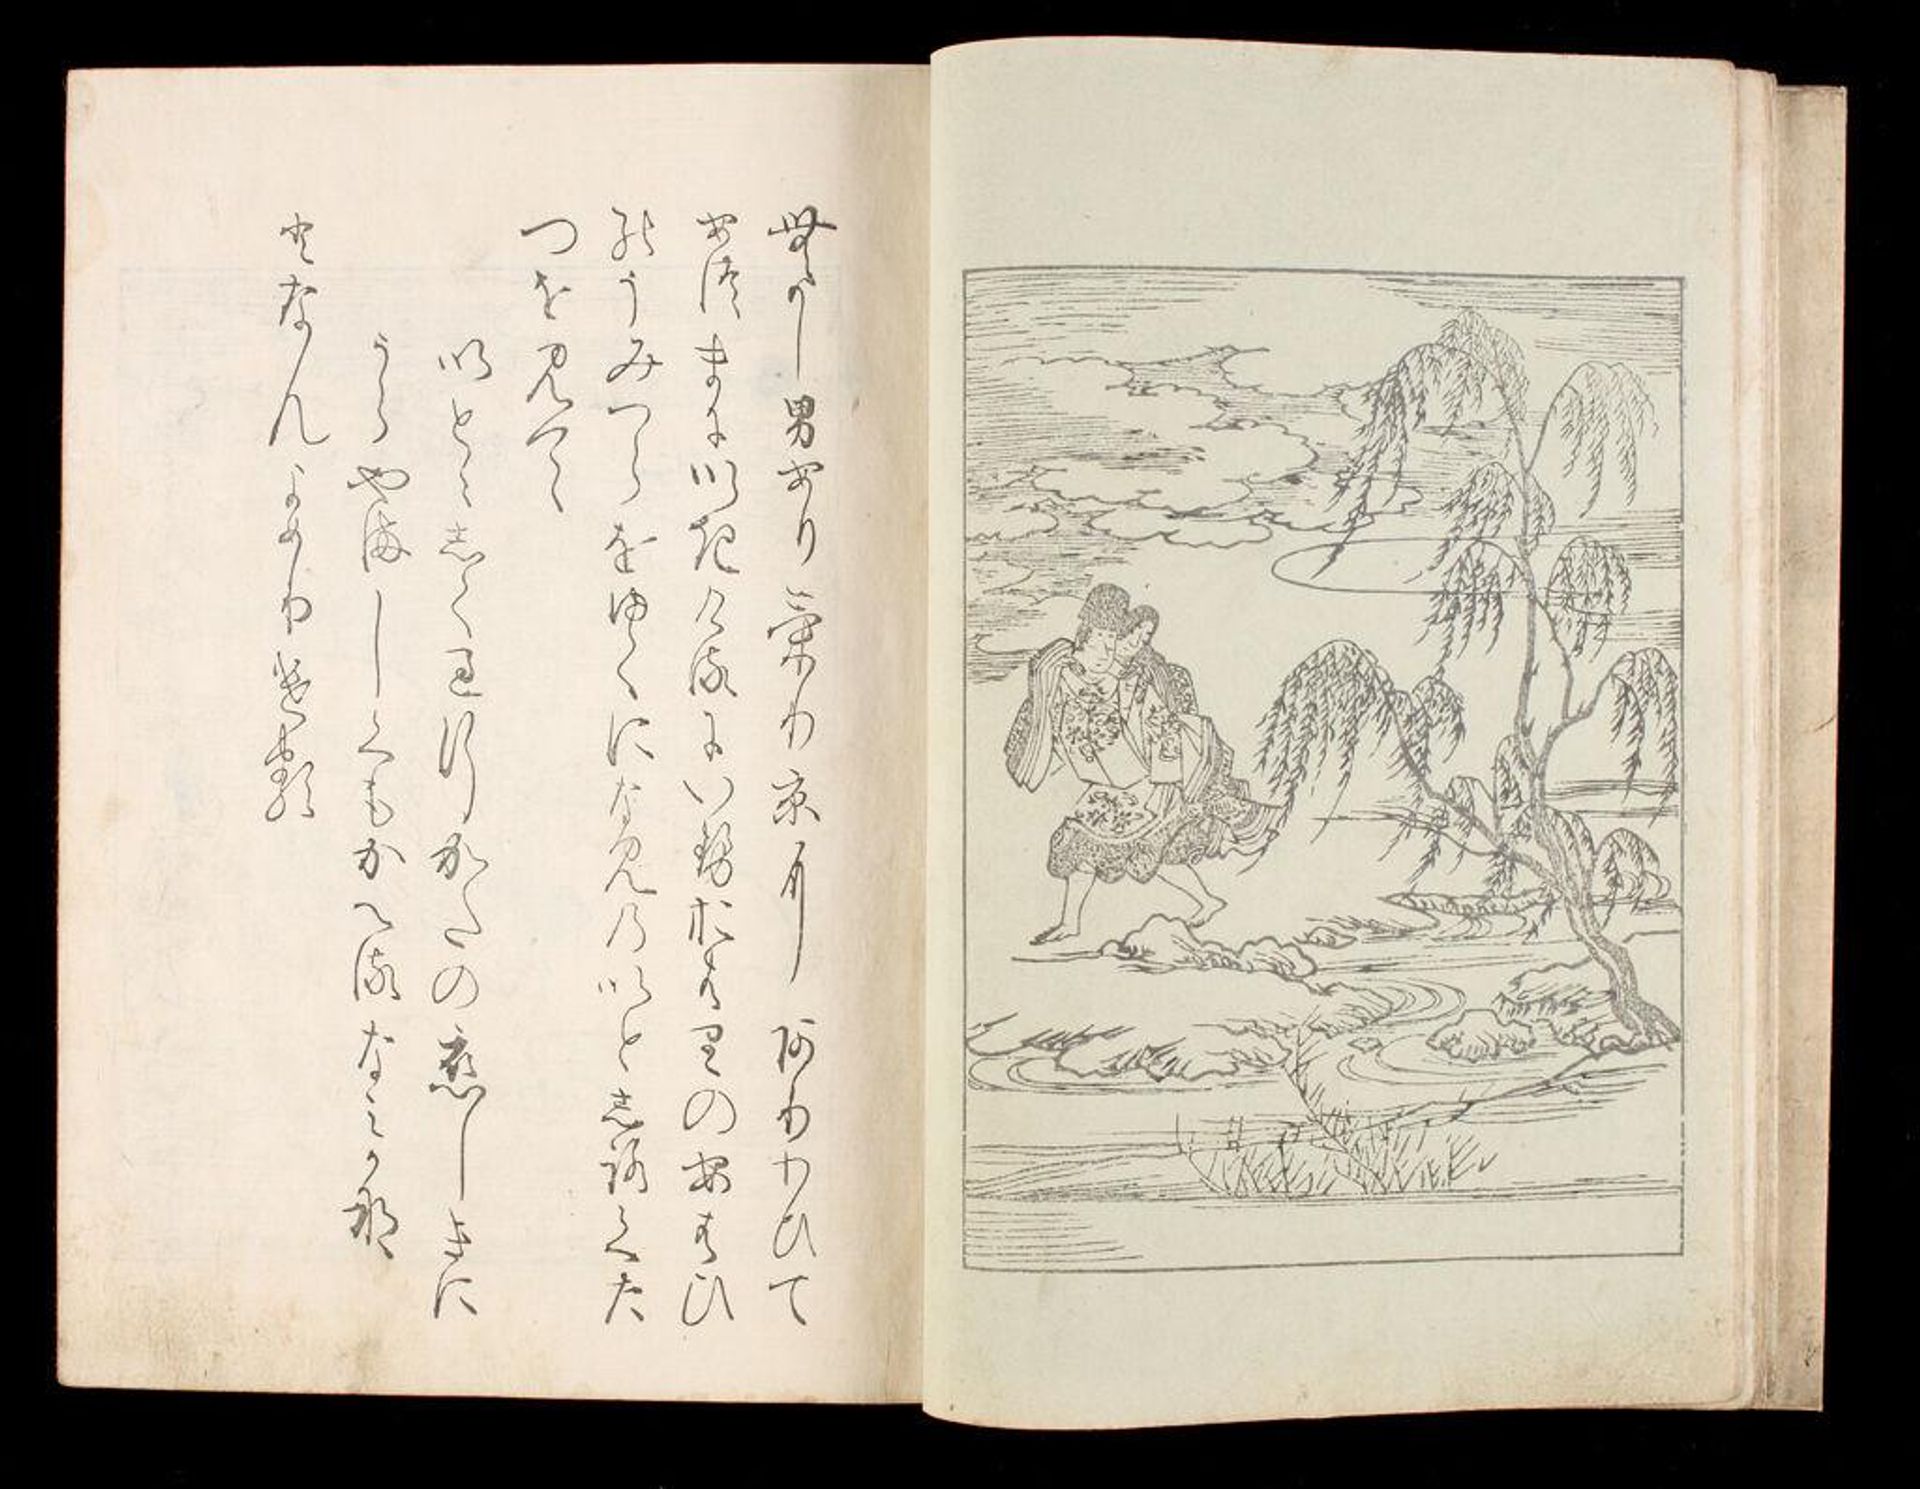 無かし男ありけり京にありわひて
あつまにいきけるにいせおはりのあはひ
のうみつらをゆくになみのいとしろくた
つを見て
いとゝしく過行かたの恋しきに
うら山しくもかへるなみかな
となんよめりける